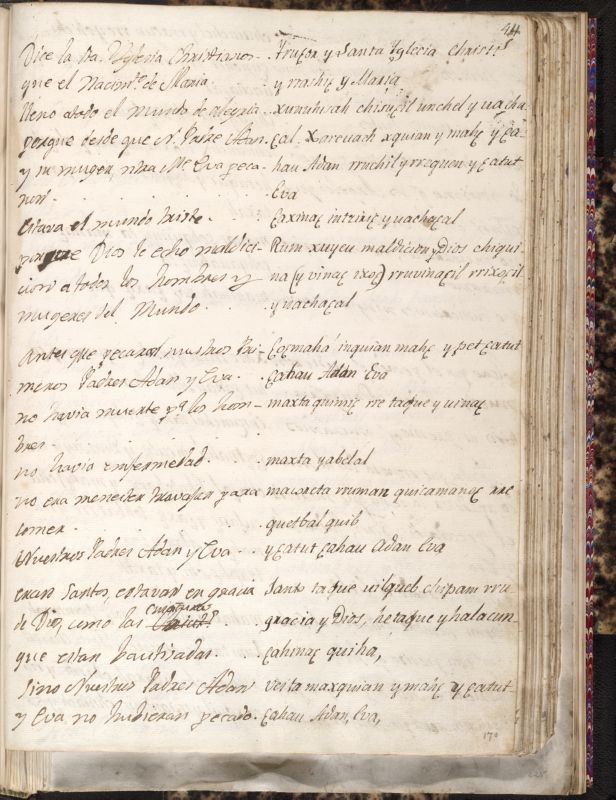 44
Dice la sta. Yglesia Christianos. - truxon y Santa Yglecia christi
que el Nacimto. de Maria. y rrachic y Maria
lleno a todo el mundo de alegria. xunuhirah chirugil unchel y uacha
porque desde que N. Padre Adan. cal. Xarevach xquian y mahc y ca-
y su muger, ntra Me. Eva peca- hau Adan rruchil yrrequen y catut
ron. Eva
Estava el mundo triste. caxinac intzinic y uachacal
porque Dios le echo maldici- Rum xuyeu maldicion y Dios chiqui
cion a todos los hombres y na (y vinac ixoc) rruvinacil rrixocil
mugeres del Mundo. y uachacal
Antes que pecaron nuestros Pri- Cocmaha inquian mahc y pet catut
meros Padres Adan y Eva. cahau Adan Eva
no havia muerte pa. los hom- maxta quimic rre taque y uinac
bres.
no havia enfermedad. maxta yabelal
no era menester travajar para macoreta rruman quicamanoc rre
comer. quetbal quib
Nuestros Padres Adan y Eva. y catut cahau Adan Eva
eran Santos, estavan en gracia Santo taque uilqueb chipam rru-
de Dios, como las criaturas gracia y Dios, he taque y halacun-
que estan bautisadas. cahinac quiha,
Sino Nuestros Padres Adan vesta maxquian y mahc y catut
y Eva no hubieran pecado. cahau Adan, Eva,
170
225